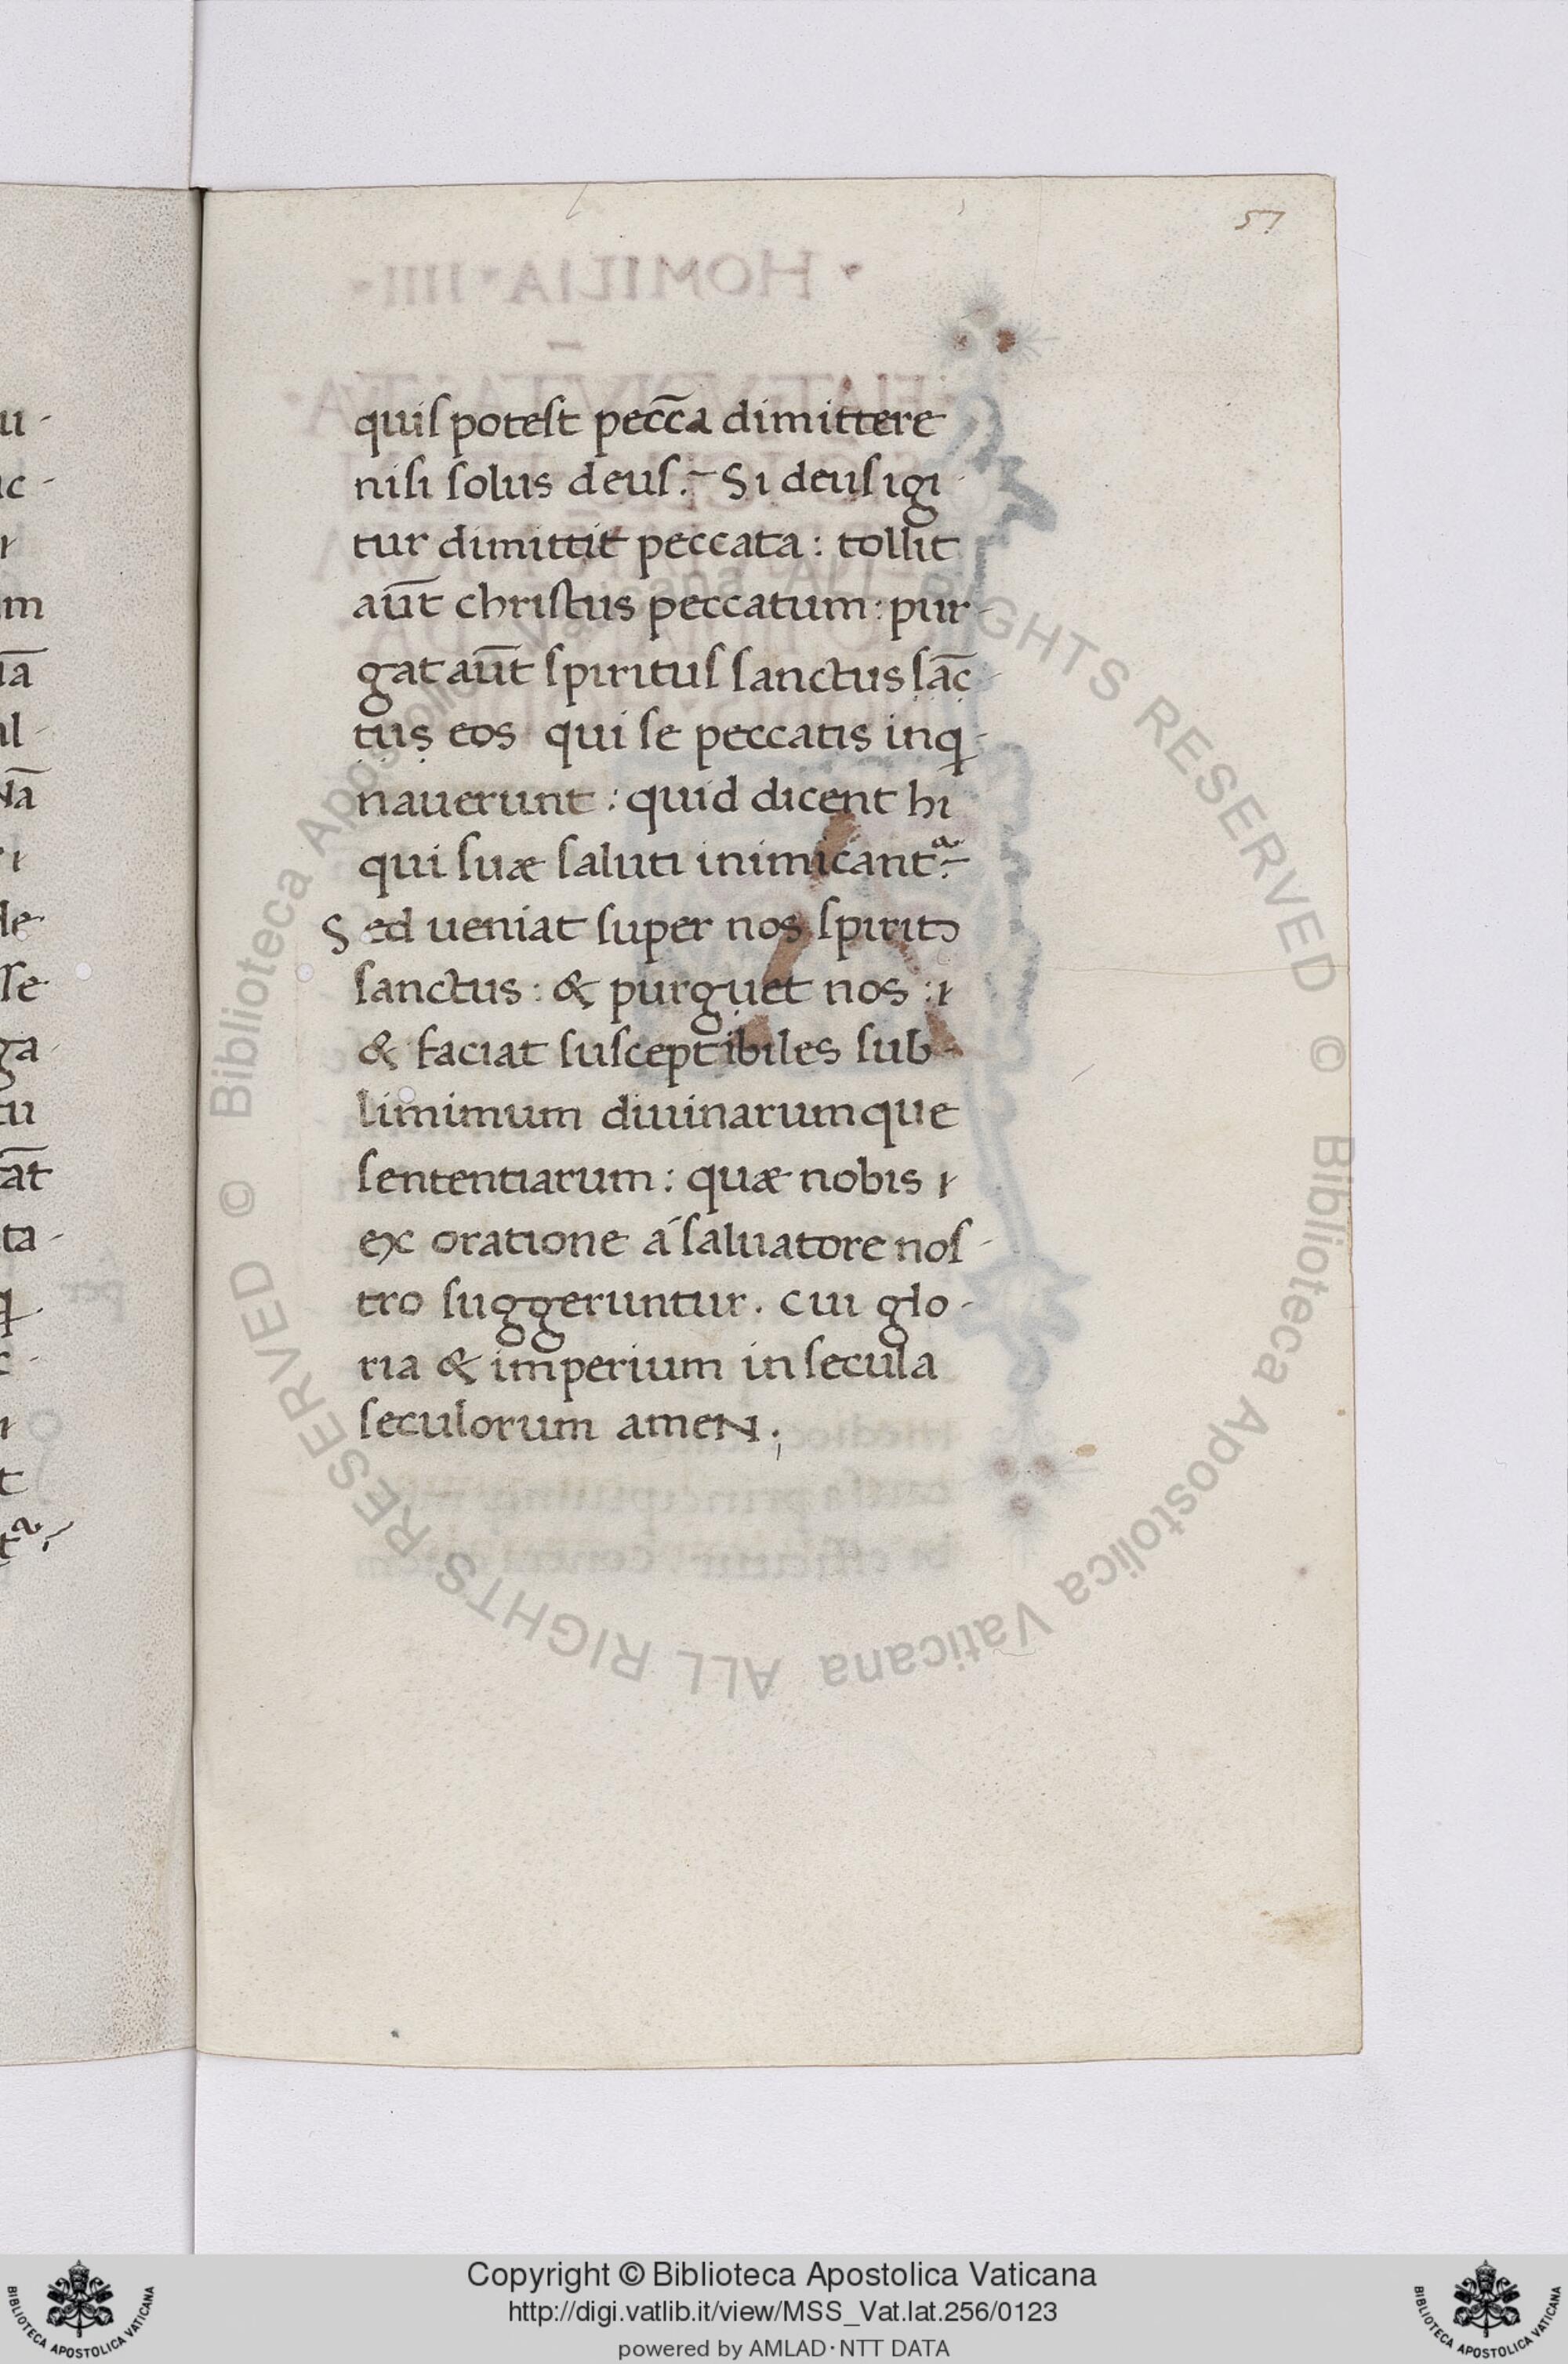 57
quis potest pecc̄a dimittere
nisi solus deus. Si deus igi
tur dimittit peccata: tollit
aūt christus peccatum: pur-
gat aūt spiritus sanctus sāc-
tus eos qui se peccatis inq-
nauerunt: quid dicent hi
qui suæ saluti inimicant
Sed ueniat super nos spirit
sanctus: & purguet nos:
& faciat susceptibiles sub-
limimum diuinarumque
sententiarum: quæ nobis
ex oratione á saluatore nos-
tro suggeruntur. cui glo-
ria & imperium in secula
seculorum ameN.;
© Biblioteca Apostolica Vaticana ALL RIGHTS RESERVED © Biblioteca Apostolica Vaticana ALL RIGHTS RESERVED
Copyright © Biblioteca Apostolica Vaticana
http://digi.vatlib.it/view/MSS_Vat.lat.256/0123
powered by AMLAD・NTT DATA
BIBLIOTECA APOSTOLICA VATICANA
BIBLIOTECA APOSTOLICA VATICANA